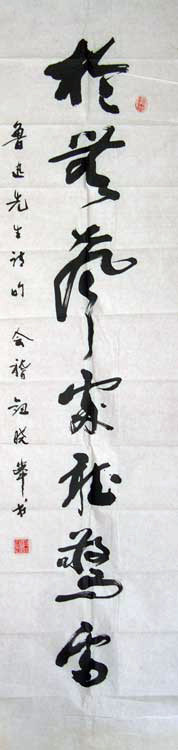 於無聲處聽驚雷
鲁迅先生诗句 会稽 书